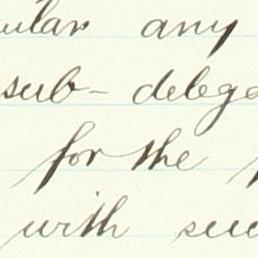 ular any
sub- delega
for the
with suc